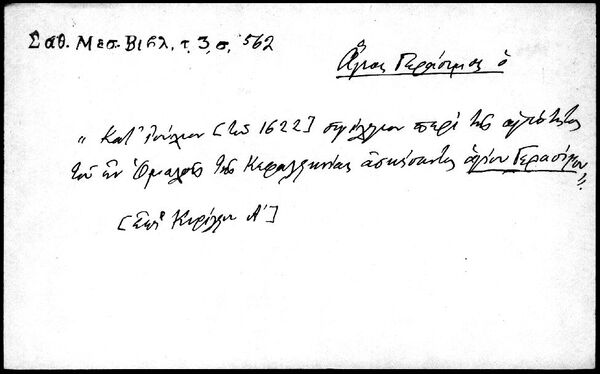 Σαθ. Μεσ. Βιβλ. τ. 3, σ. 562
Ἅγιος Γεράσιμος ὁ
„ Κατ' Ἰούλιον [τοῦ 1622] σιγίλλιον περὶ τῆς ἁγιότητος
τοῦ ἐν Ὁμαλοῖς τῆς Κεφαλληνίας ἀσκήσαντος ἁγίου Γερασίμου "
[Ἐπὶ Κυρίλλου Α']